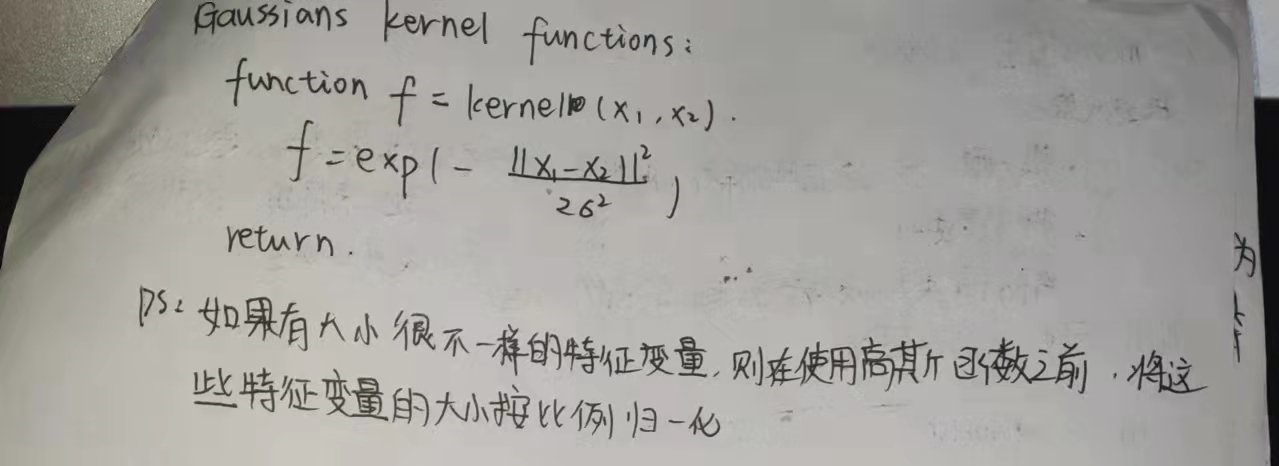 Gaussians kernel functions:
function f = kernel(x₁, x₂).
f = exp(- ||x₁-x₂||² / 2σ²)
return.
PS: 如果有大小很不一样的特征变量,则在使用高斯函数之前,将这
些特征变量的大小按比例归一化
为